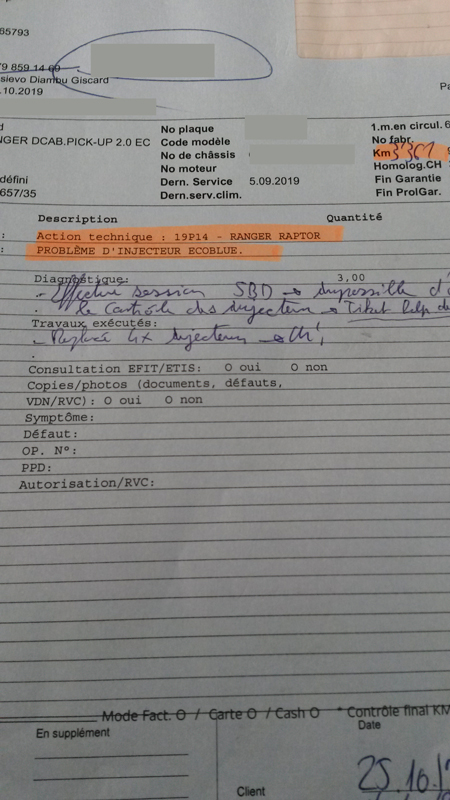 65793
79 859 14 69
sievo Diambu Giscard
.10.2019
NGER DCAB.PICK-UP 2.0 EC
défini
657/35
No plaque
Code modèle
No de châssis
No moteur
Dern. Service 5.09.2019
Dern.serv.clim.
1.m.en circul. 6
No fabr.
Km 3361
Homolog.CH
Fin Garantie
Fin ProlGar.
Description Quantité
: Action technique : 19P14 - RANGER RAPTOR
: PROBLÈME D'INJECTEUR ECOBLUE.
Diagnostique: 3,00
- Effective session SBD → impossible d'
le contrôle des injecteurs → Tiket
Travaux exécutés:
- Remplacé 4x injecteurs →
.
Consultation EFIT/ETIS: O oui O non
Copies/photos (documents, défauts,
VDN/RVC): O oui O non
Symptôme:
Défaut:
OP. N°:
PPD:
Autorisation/RVC:
Mode Fact. O / Carte O / Cash O * Contrôle final KM
En supplément
Date
25.10.1
Client